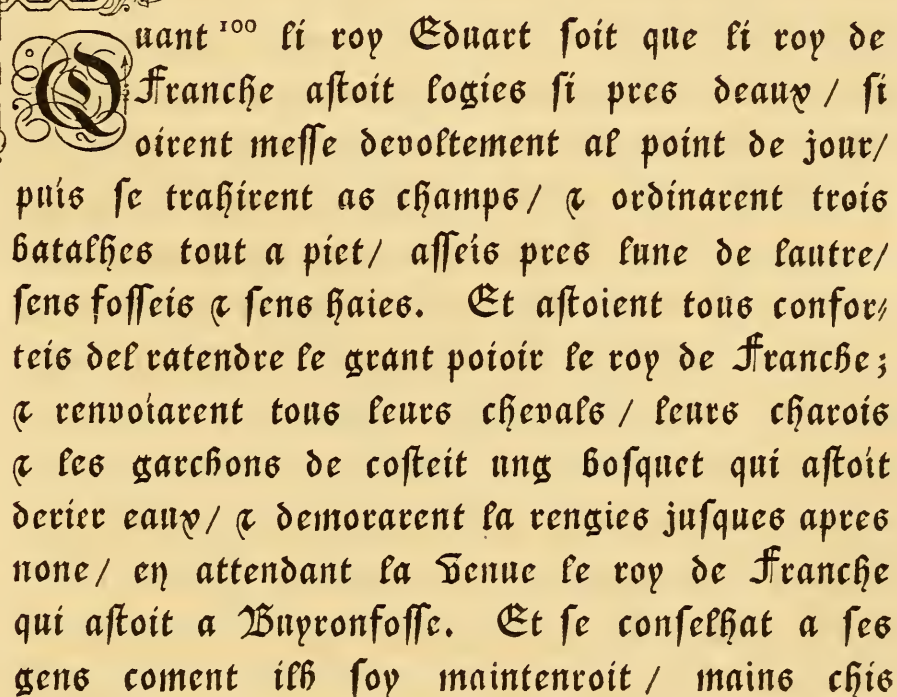 Quant ¹⁰⁰ li roy Eduart soit que li roy de
Franche astoit logies si pres deaux / si
oirent messe devoltement al point de jour/
puis se trahirent as champs/ & ordinarent trois
batalhes tout a piet/ asseis pres lune de lautre/
sens fosseis & sens haies. Et astoient tous confor-
teis del ratendre le grant poioir le roy de Franche;
& renvoiarent tous leurs chevals / leurs charois
& les garchons de costeit ung bosquet qui astoit
derier eaux/ & demorarent la rengies jusques apres
none/ en attendant la Venue le roy de Franche
qui astoit a Buyronfosse. Et se conselhat a ses
gens coment ilh soy maintenroit / mains chis